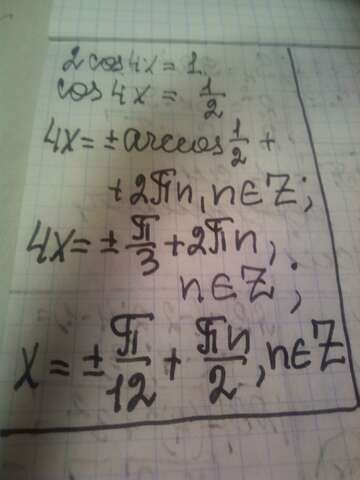 2cos4x = 1
cos4x = 1/2
4x = ± arccos 1/2 +
+ 2πn, n∈Z;
4x = ± π/3 + 2πn,
n∈Z;
x = ± π/12 + πn/2, n∈Z